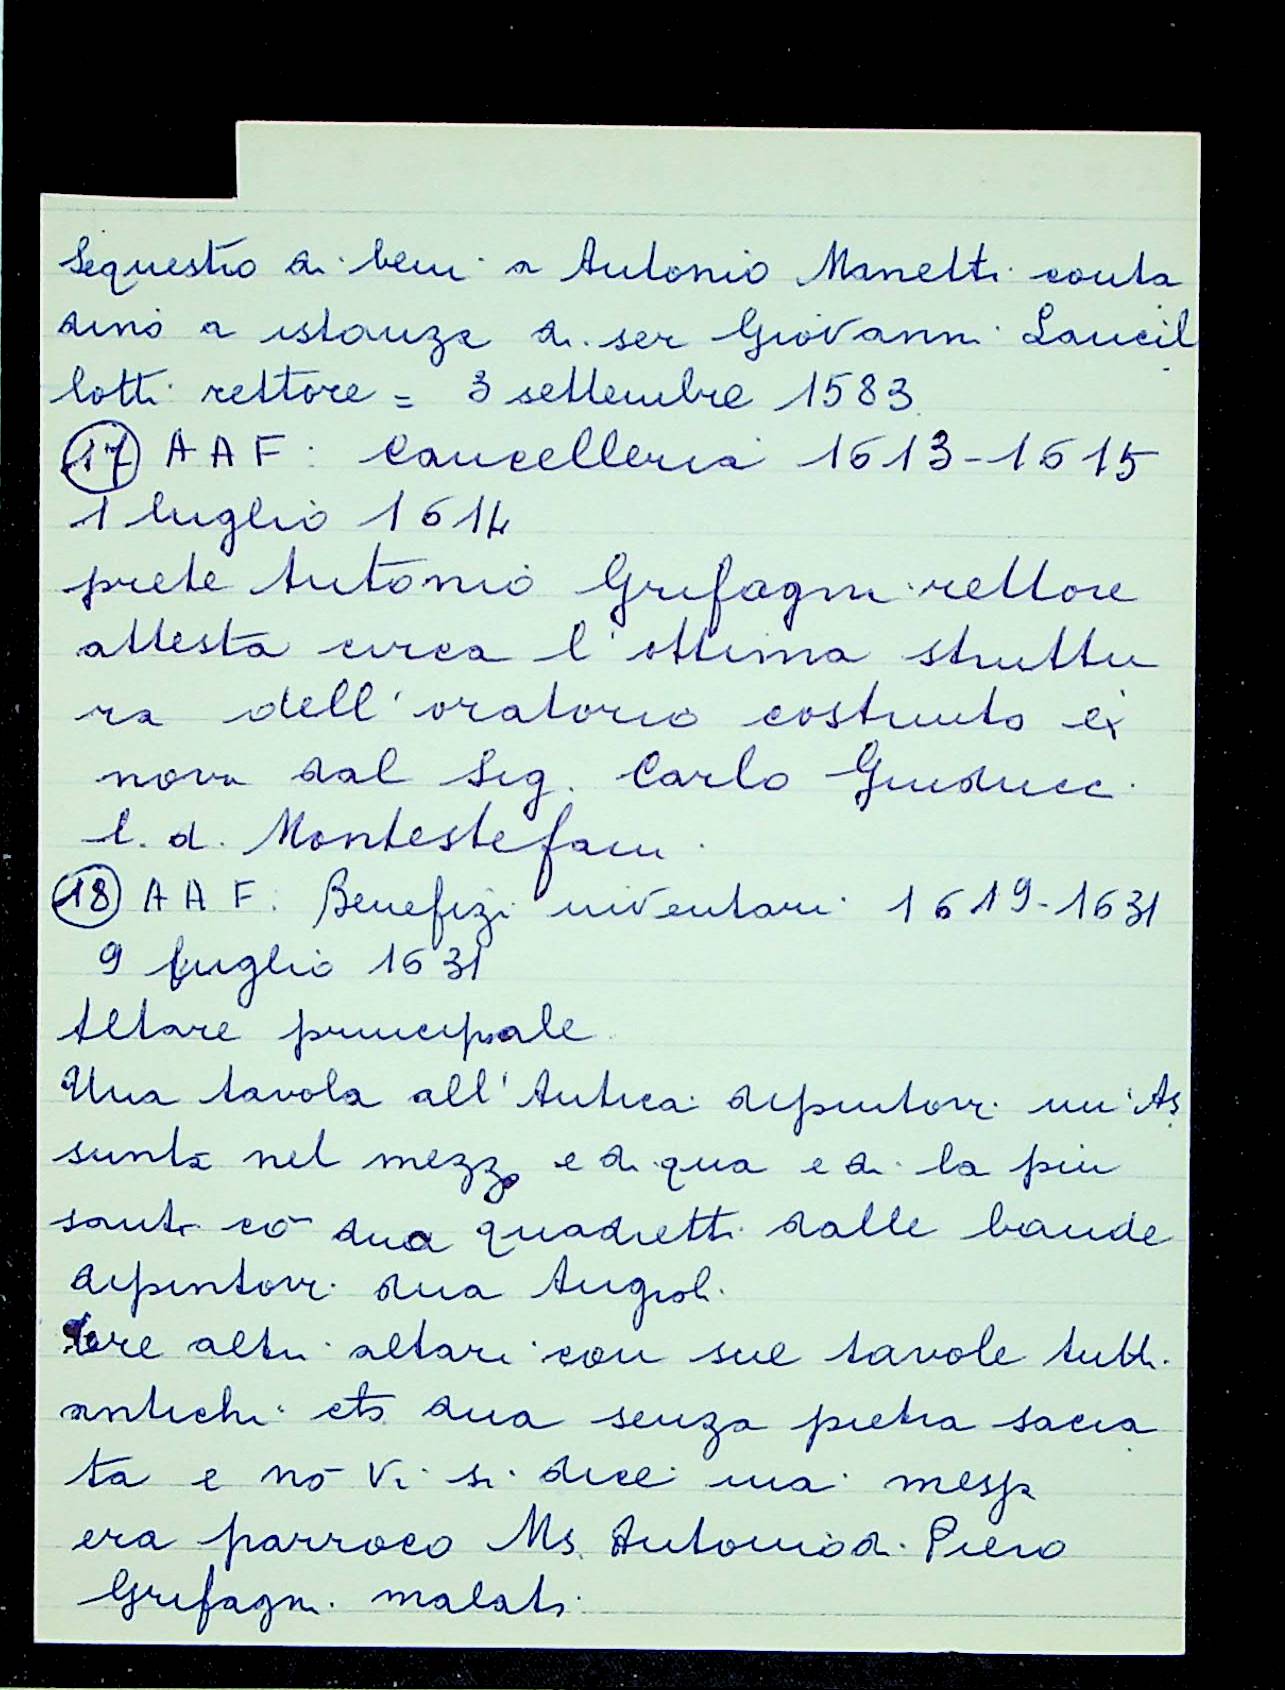 Sequestro di beni a Antonio Manetti conta
dino a istanza di ser Giovanni Lancil
lotti rettore = 3 settembre 1583
17 AAF: Cancelleria 1613-1615
1 luglio 1614
prete Antonio Grifagni rettore
attesta circa l'ottima struttu
ra dell'oratorio costruito ex
novo dal Sig. Carlo Guiducci
l. d. Montestefani.
18 AAF: Benefizi inventari 1619-1631
9 luglio 1631
Altare principale
Una tavola all'Antica dipintovi un'As
sunta nel mezzo e di qua e di la più
santi cō dua quadretti dalle bande
dipintovi dua Angioli.
tre altri altari con sue tavole tutti
antichi et dua senza pietra sacra
ta e nō vi si dice mai messa
era parroco Ms. Antonio di Piero
Grifagni malato